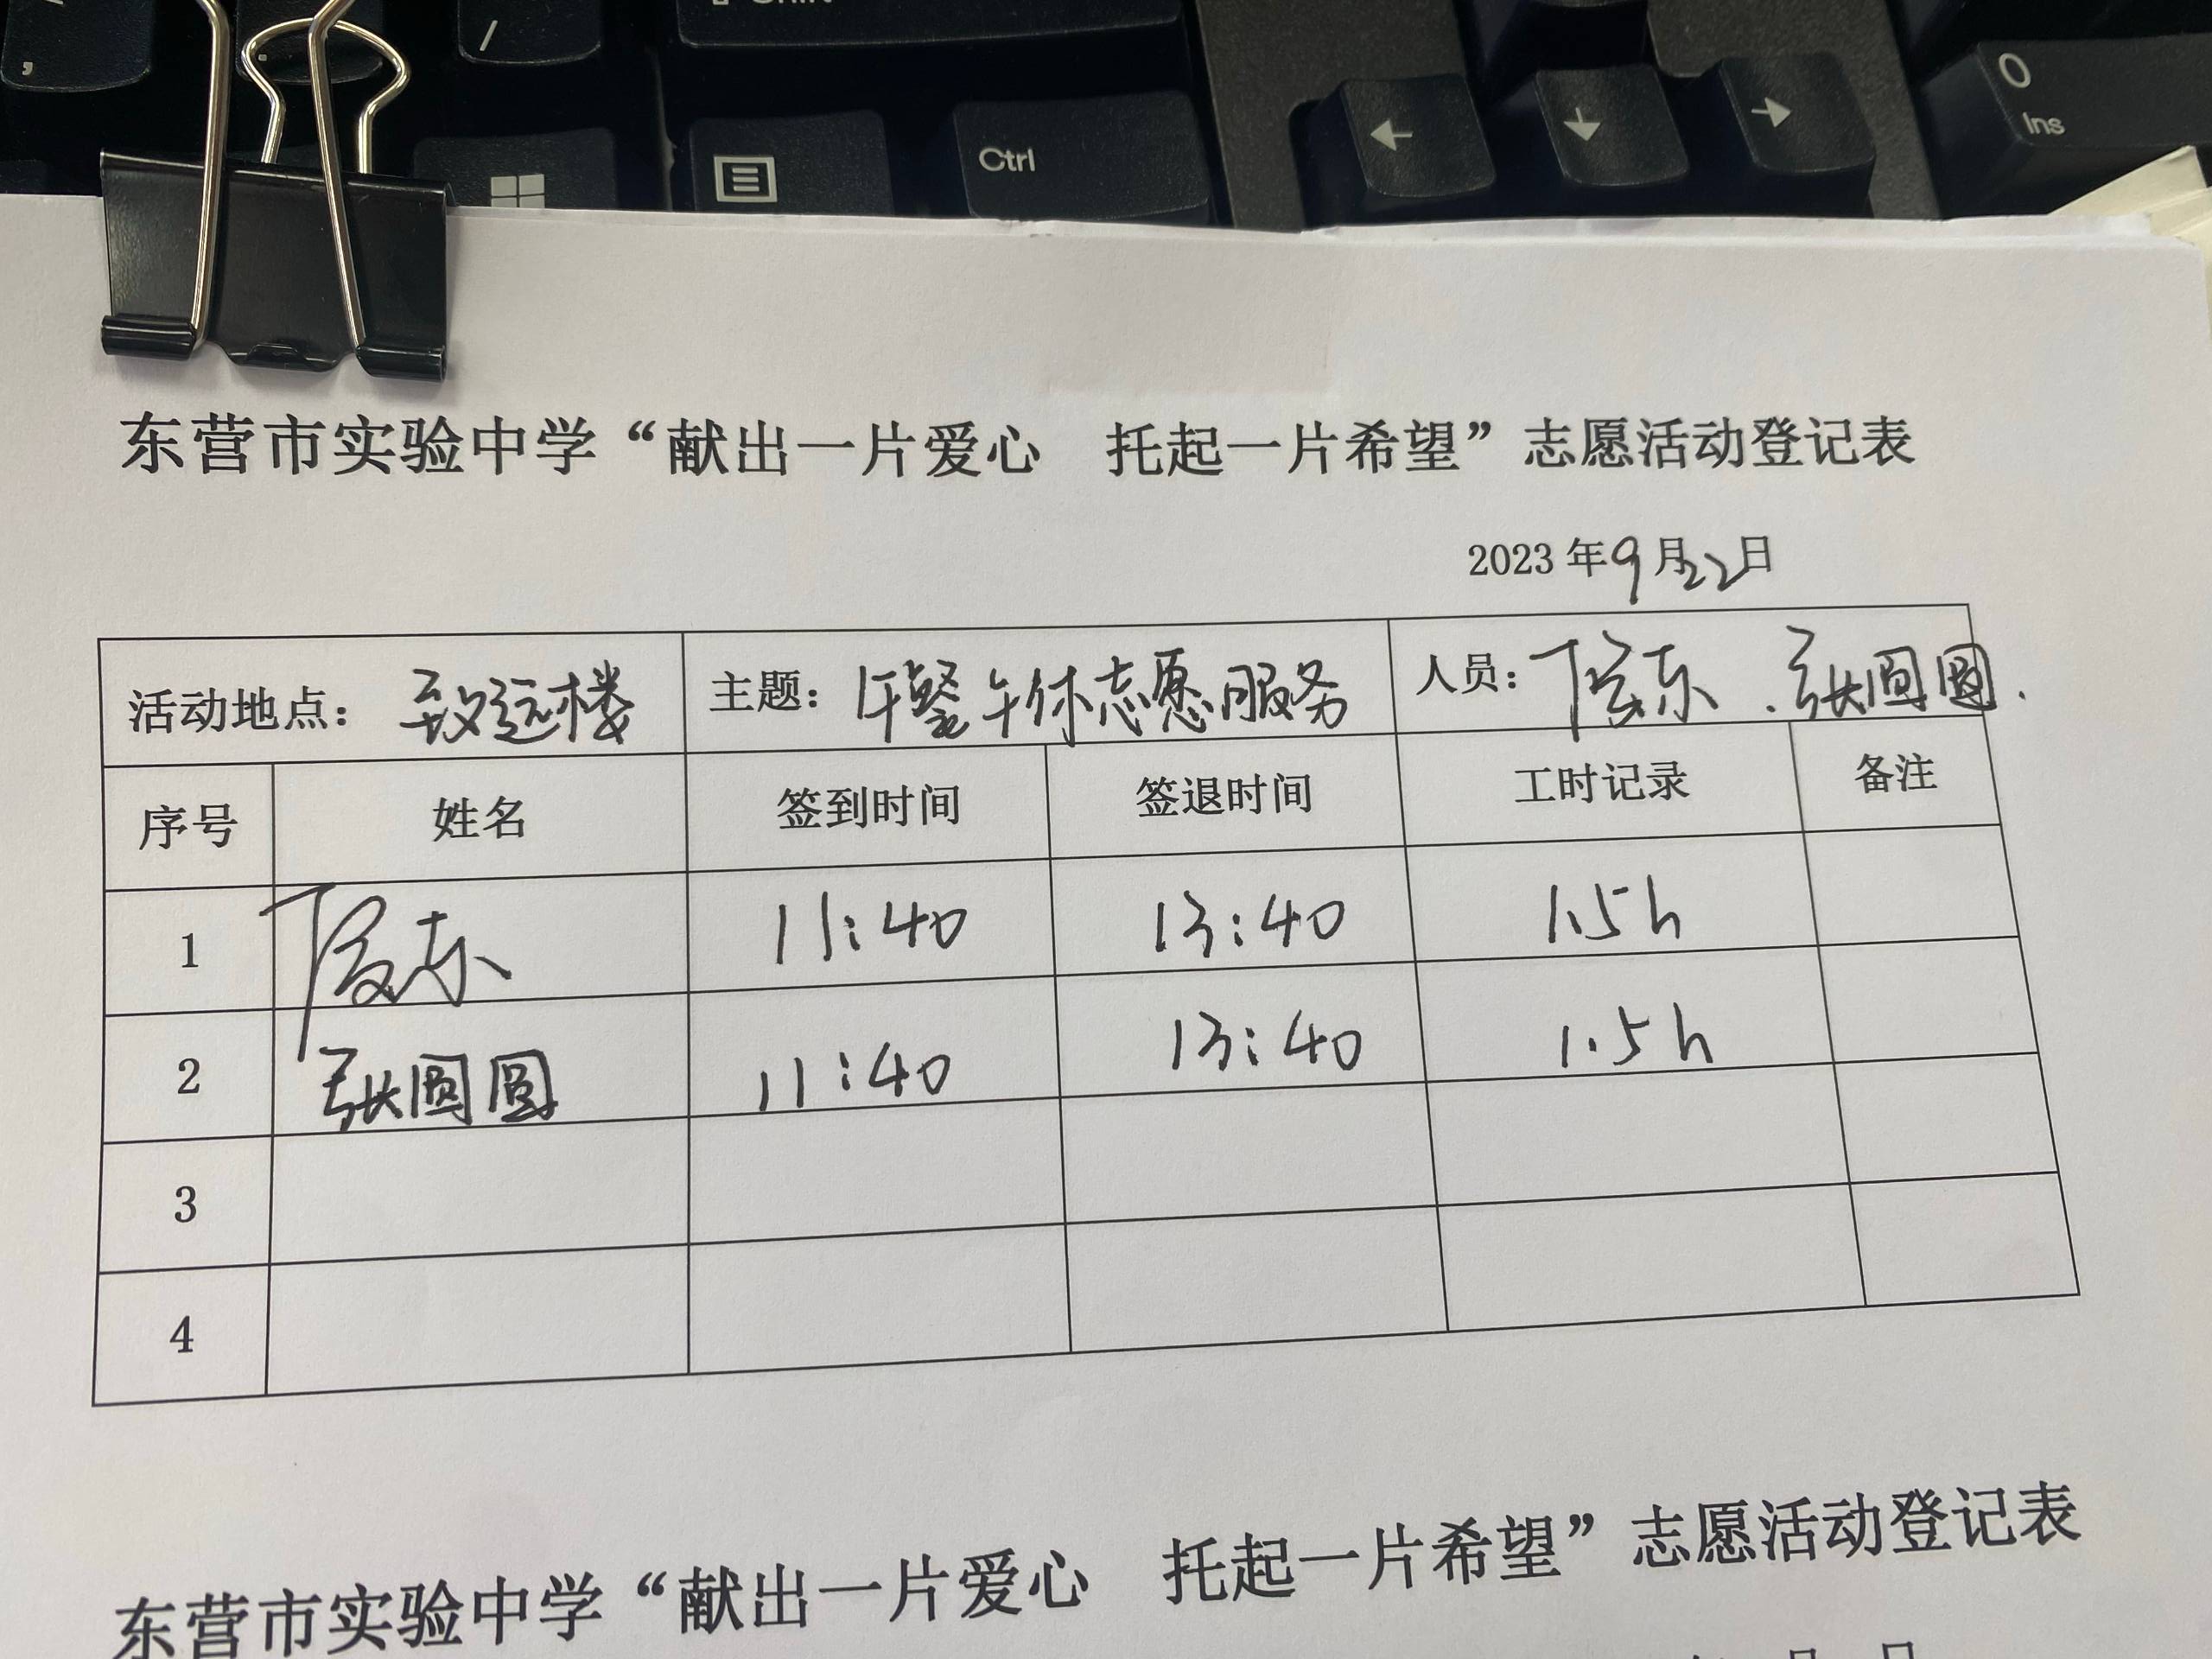 Shift
,
.
/
Ctrl
←
↓
→
0
Ins
东营市实验中学“献出一片爱心 托起一片希望”志愿活动登记表
2023年9月22日
活动地点：致远楼 主题：午餐午休志愿服务 人员：东、张圆圆.
序号 姓名 签到时间 签退时间 工时记录 备注
1 东 11:40 13:40 1.5h
2 张圆圆 11:40 13:40 1.5h
3
4
东营市实验中学“献出一片爱心 托起一片希望”志愿活动登记表